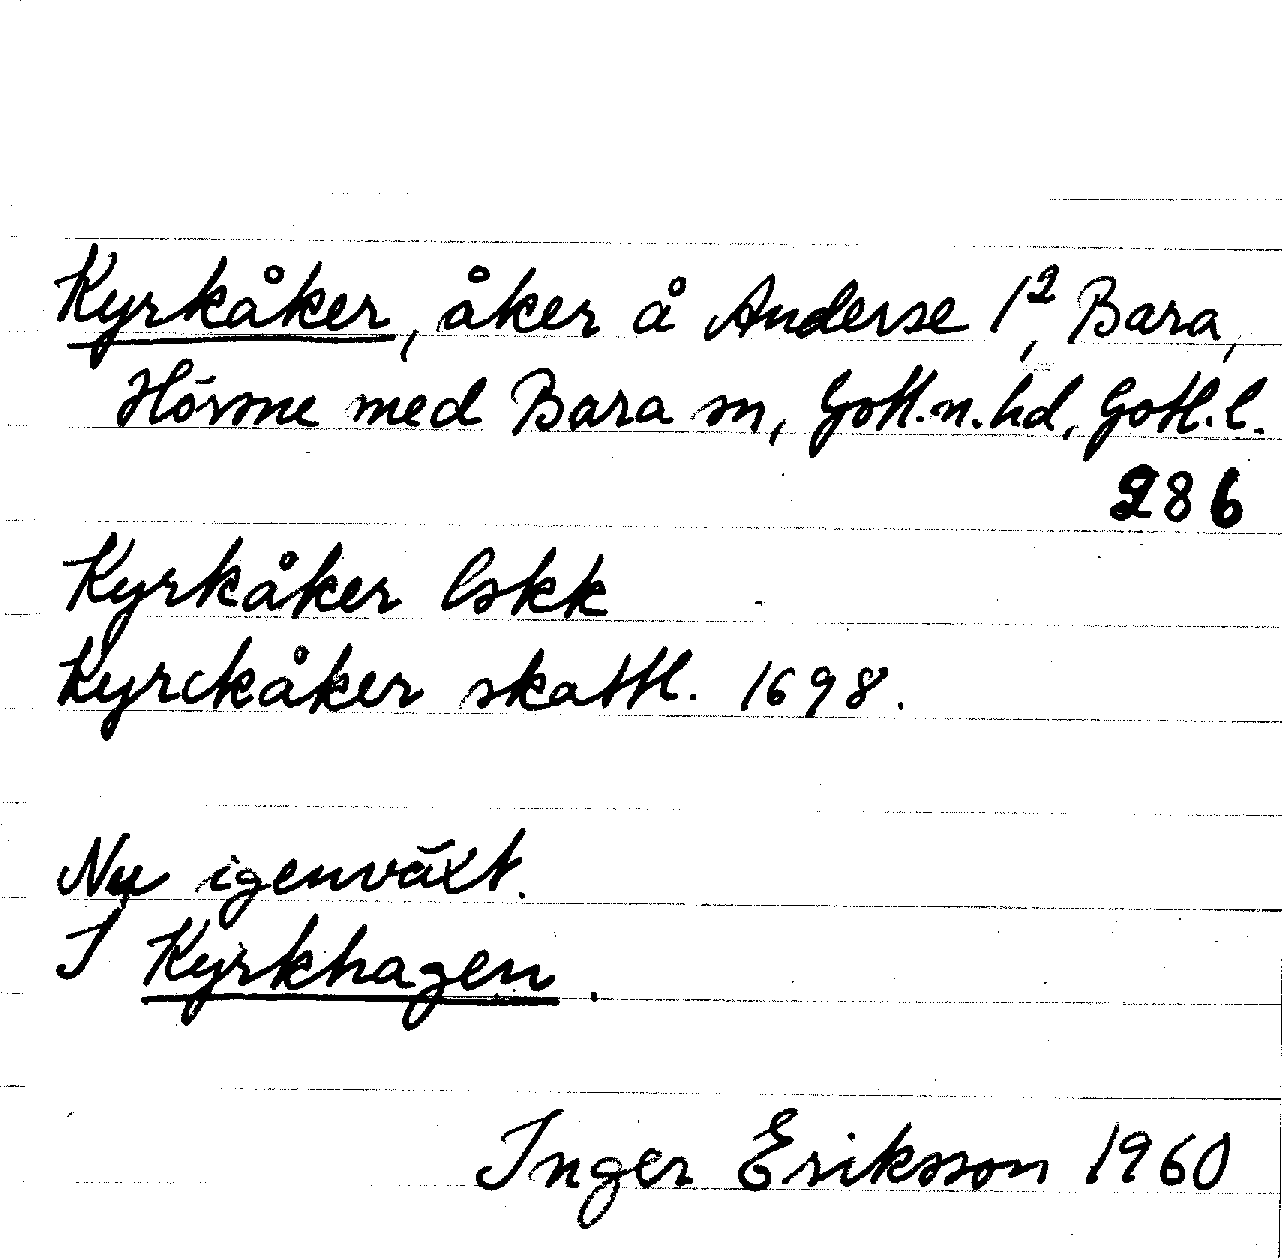 Kyrkåker, åker å Anderse 1², Bara,
Hörsne med Bara sn, Gotl.n.hd, Gotl.l.
286
Kyrkåker Cskk
Kyrckåker skattl. 1698.
Nu igenväxt.
I Kyrkhagen.
Inger Eriksson 1960